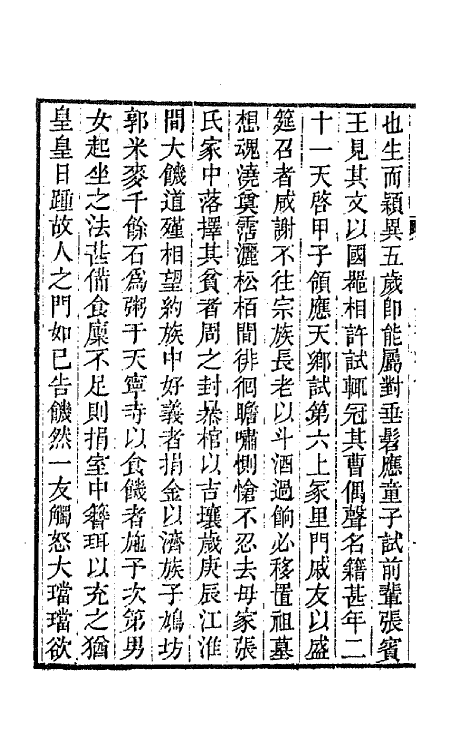 也生而穎異五歲卽能屬對垂髫應童子試前輩張賓
王見其文以國器相許試輒冠其曹偶聲名籍甚年二
十一天啓甲子領應天鄉試第六上冢里門戚友以盛
筵召者咸謝不往宗族長老以斗酒過餉必移置祖墓
想魂澆奠霑灑松栢間徘徊瞻嘯惻愴不忍去毋家張
氏家中落擇其貧者周之封暴棺以吉壤歲庚辰江淮
間大饑道殣相望約族中好義者捐金以濟族子鳩坊
郭米麥千餘石爲粥于天寧寺以食饑者施予次第男
女起坐之法甚備食糜不足則捐室中簪珥以充之猶
皇皇日踵故人之門如已告饑然一友觸怒大璫璫欲